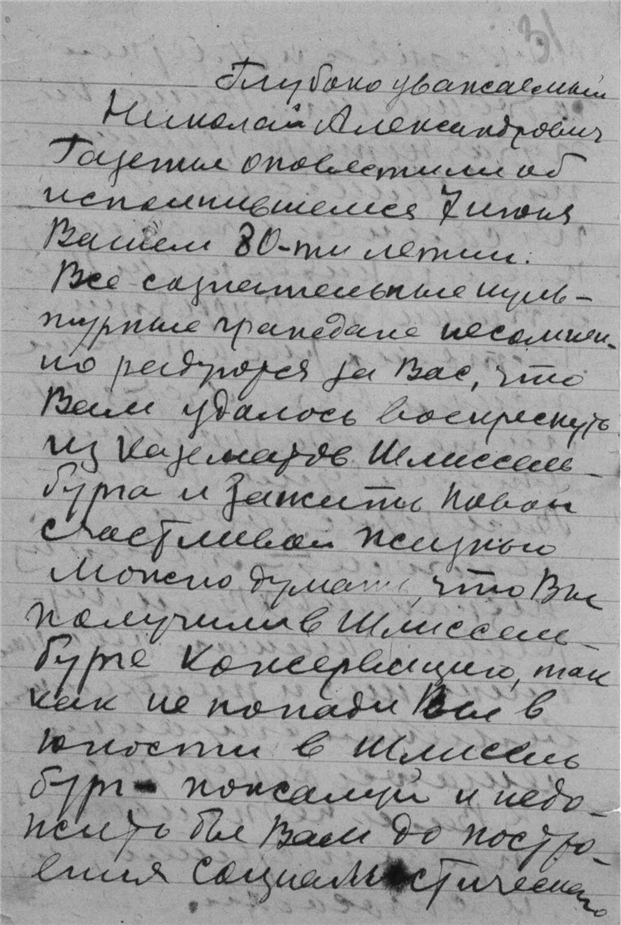 Глубокоуважаемый
Николай Александрович
Газеты оповестили об
исполнившемся 7 июля
Вашем 80-ти летии.
Все сознательные куль-
турные граждане несомнен-
но радуются за Вас, что
Вам удалось воскреснуть
из казематов Шлиссель-
бурга и зажить новой
счастливой жизнью
Можно думать, что Вы
получили в Шлиссель-
бурге консервацию, так
как не попади Вы в
юности в Шлиссель
бург - пожалуй и недо-
жить бы Вам до постро-
ения социалистического